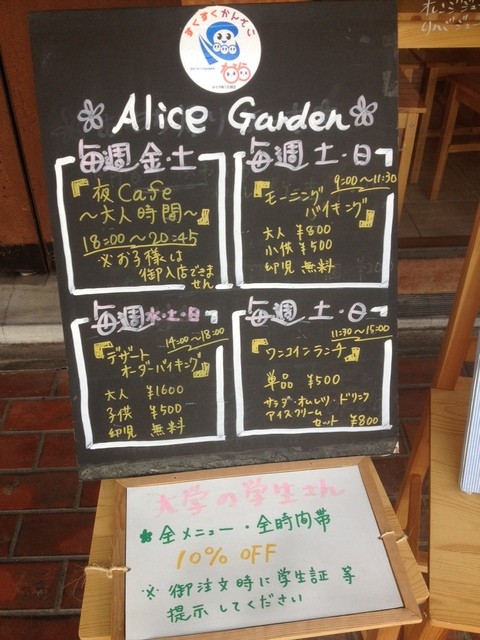 すくすくかんさつ
Alice Garden
毎週金・土
夜Cafe
～大人時間～
18:00～20:45
※お子様は
御入店できま
せん
毎週 土・日
9:00～11:30
モーニング
バイキング
大人 ¥800
小供 ¥500
幼児 無料
毎週水・土・日
14:00～18:00
デザート
オーダーバイキング
大人 ¥1600
子供 ¥500
幼児 無料
毎週 土・日
11:30～15:00
ワンコインランチ
単品 ¥500
サラダ・オムレツ・ドリンク
アイスクリーム
セット ¥800
大学の学生さん
全メニュー・全時間帯
10% OFF
※ 御注文時に学生証 等
提示してください
オレンジジュ
りんごジュ